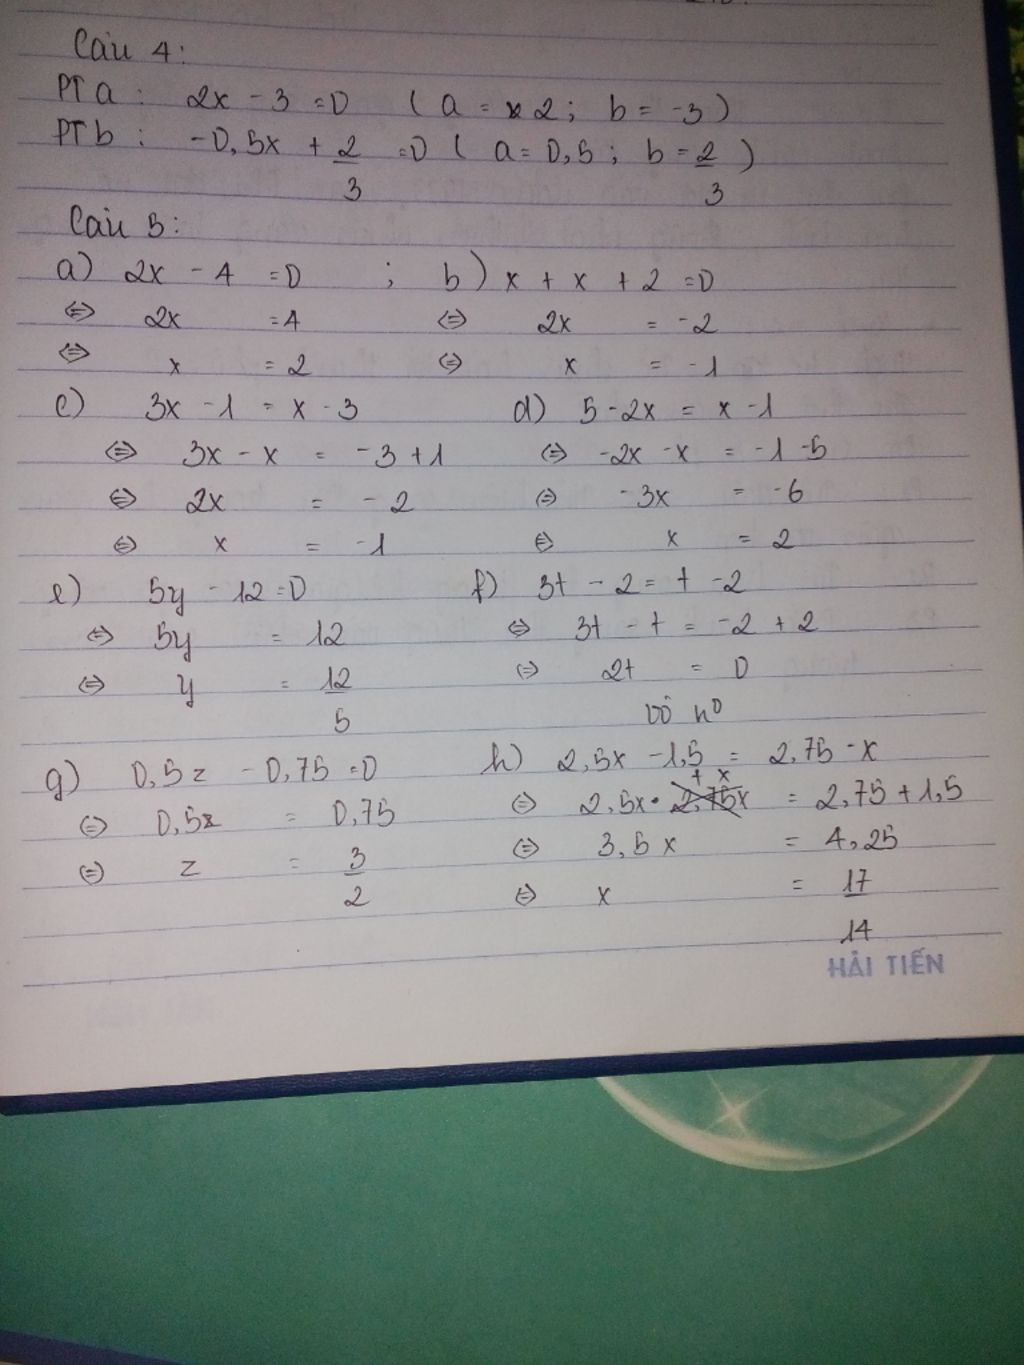 Câu 4:
PT a : 2x - 3 = 0 ( a = 2 ; b = -3 )
PT b : -0,5x + 2/3 = 0 ( a = 0,5 ; b = 2/3 )
Câu 5:
a) 2x - 4 = 0 ; b) x + x + 2 = 0
⇔ 2x = 4 ⇔ 2x = -2
⇔ x = 2 ⇔ x = -1
c) 3x - 1 = x - 3 d) 5 - 2x = x - 1
⇔ 3x - x = -3 + 1 ⇔ -2x - x = -1 - 5
⇔ 2x = -2 ⇔ -3x = -6
⇔ x = -1 ⇔ x = 2
e) 5y - 12 = 0 f) 3t - 2 = t - 2
⇔ 5y = 12 ⇔ 3t - t = -2 + 2
⇔ y = 12/5 ⇔ 2t = 0
Vô n⁰
g) 0,5z - 0,75 = 0 h) 2,5x - 1,5 = 2,75 - x
⇔ 0,5z = 0,75 ⇔ 2,5x + x = 2,75 + 1,5
⇔ z = 3/2 ⇔ 3,5x = 4,25
⇔ x = 17/14
HẢI TIẾN